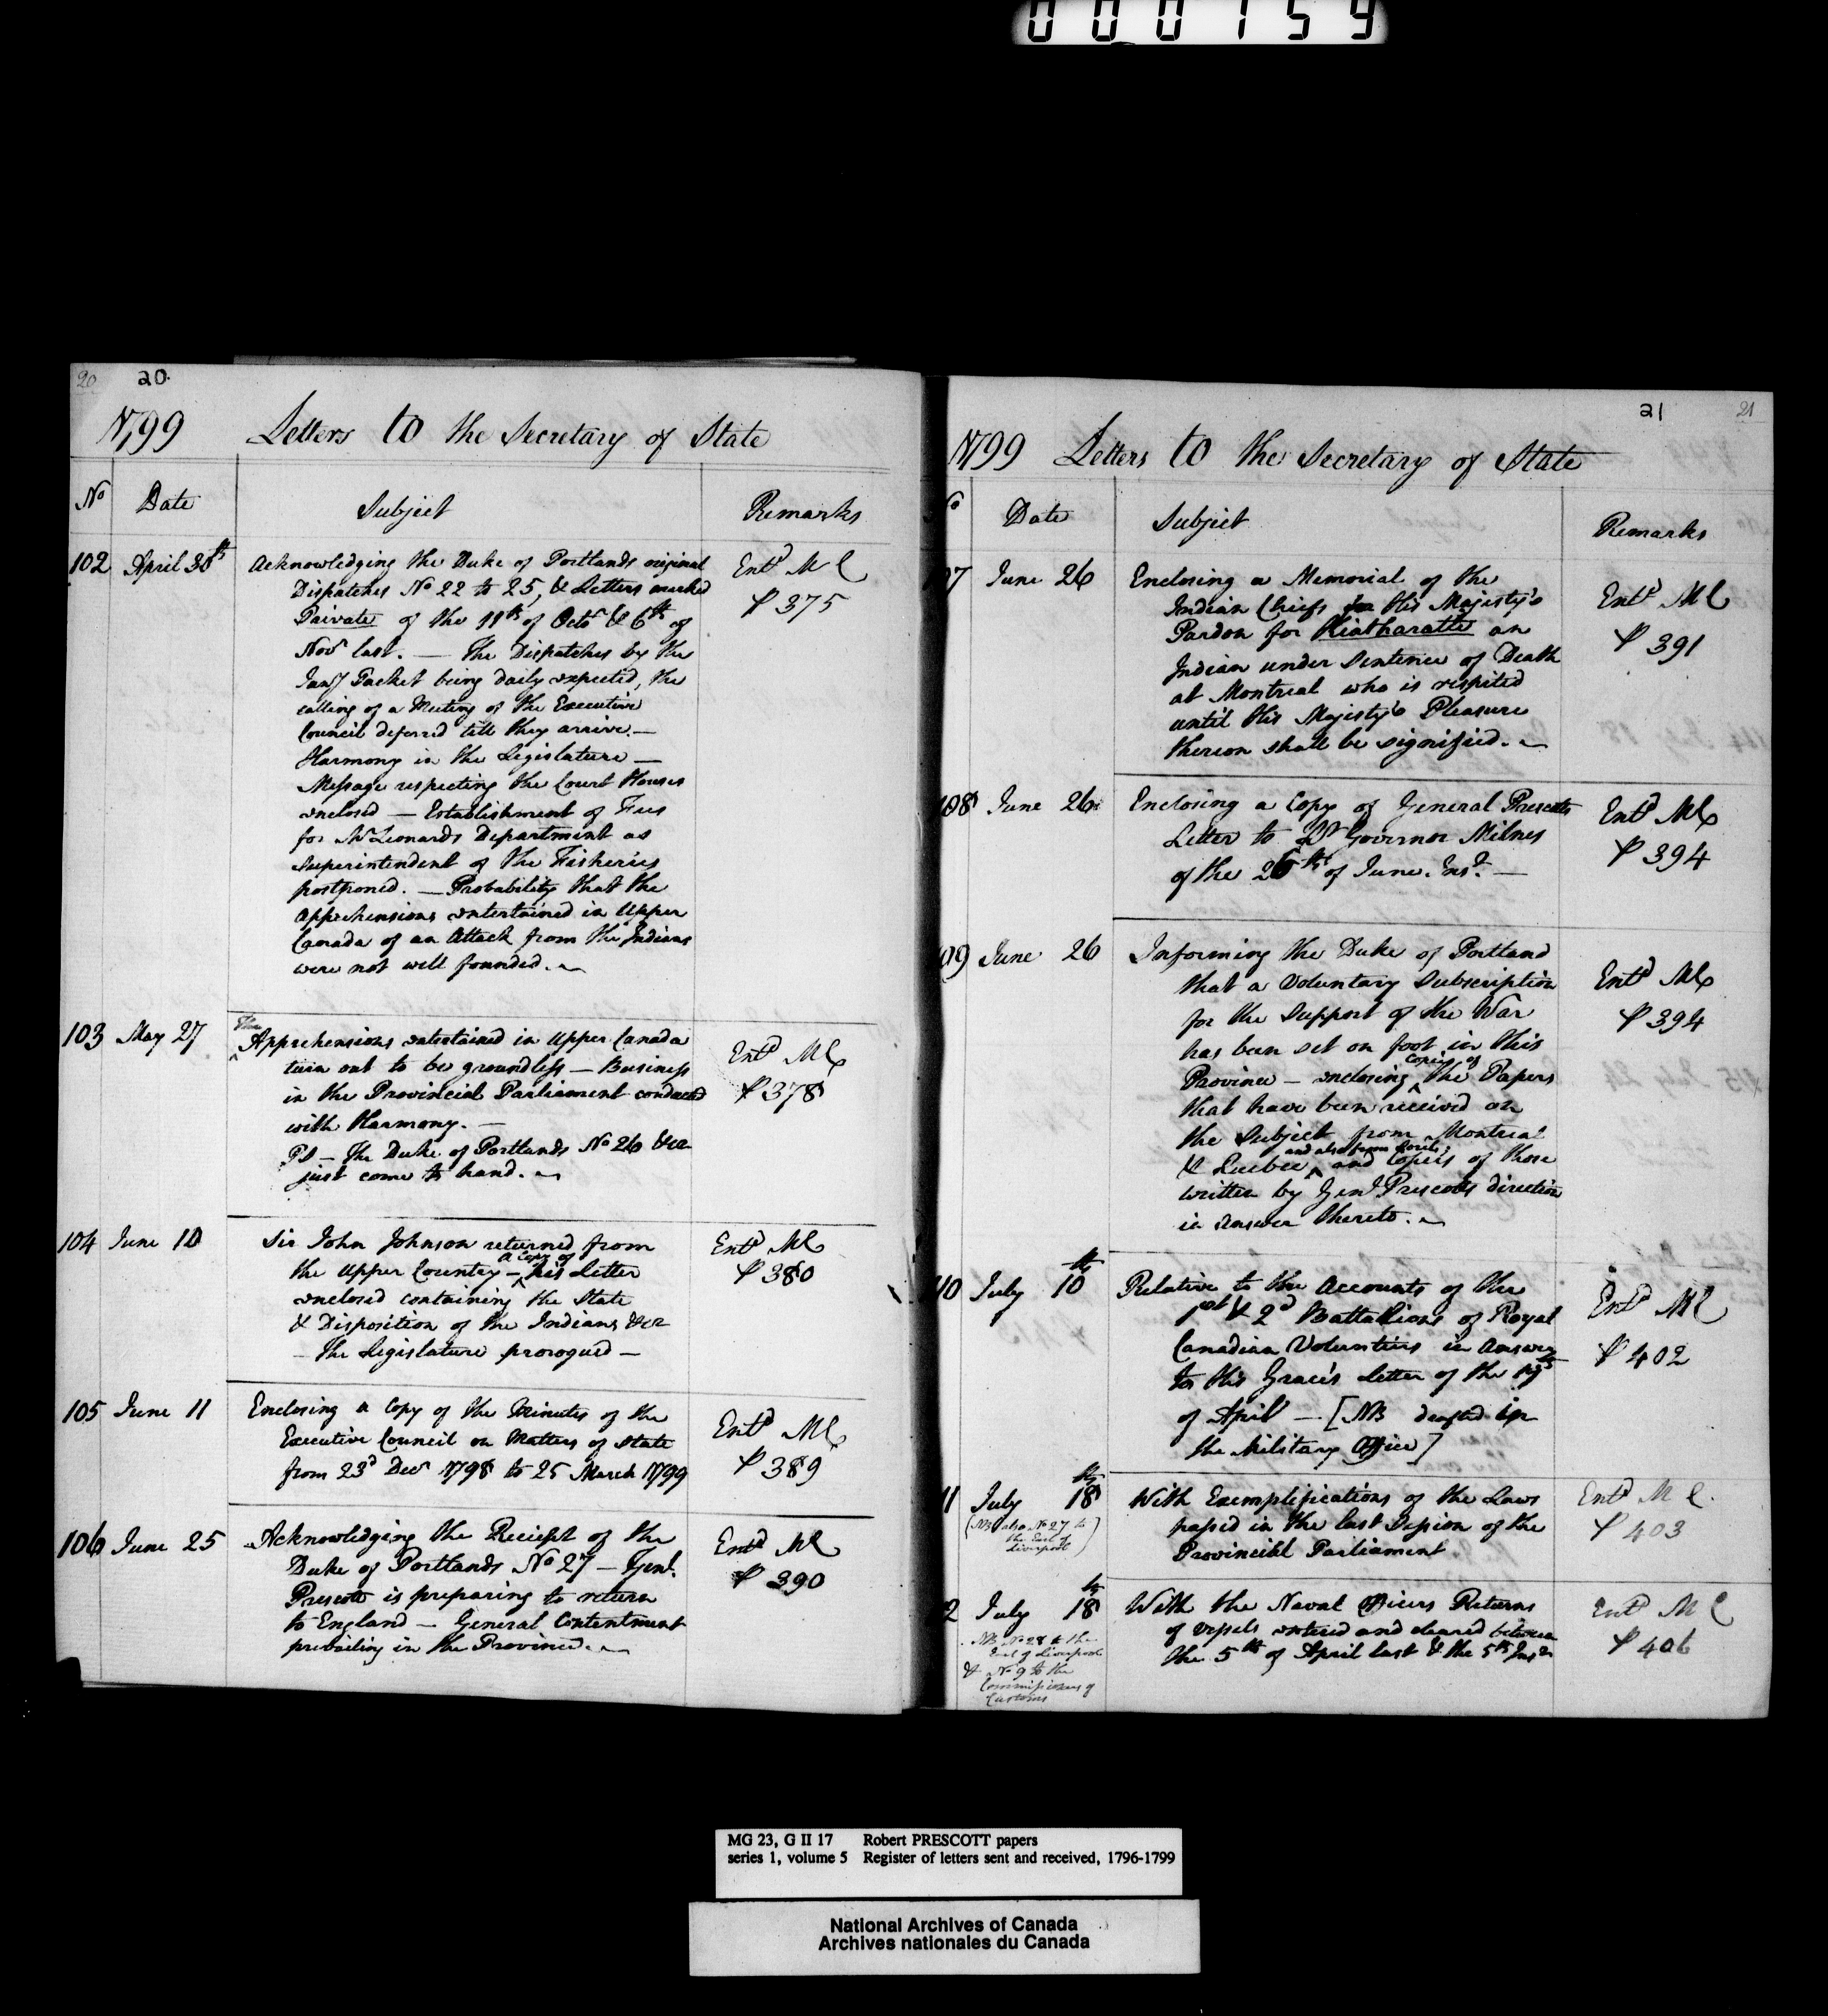 000159
20 20.
1799 Letters to the Secretary of State
No Date Subject Remarks
102 April 30th Acknowledging the Duke of Portlands original Entd M C
Dispatches No 22 to 25, & Letters marked P 375
Private of the 11th of Octr & 6th of
Novr last. — The Dispatches by the
Jany Packet being daily expected, the
calling of a Meeting of the Executive
Council deferred till they arrive. —
Harmony in the Legislature —
Message respecting the Court Houses
enclosed — Establishment of Fees
for Mr Leonards Department as
Superintendent of the Fisheries
postponed. — Probability that the
apprehensions entertained in Upper
Canada of an Attack from the Indians
were not well founded. ~
103 May 27 The Apprehensions entertained in Upper Canada Entd MC
turn out to be groundless — Business P 378
in the Provincial Parliament conducted
with Harmony. —
PS — The Duke of Portlands No 26 &ca
just come to hand. ~
104 June 10 Sir John Johnson returned from Entd MC
the Upper Country — a Copy of his Letter P 380
enclosed containing the State
& Disposition of the Indians &ca
— The Legislature prorogued —
105 June 11 Enclosing a Copy of the Minutes of the Entd MC
Executive Council on Matters of State P 389
from 23d Decr 1798 to 25 March 1799
106 June 25 Acknowledging the Receipt of the Entd MC
Duke of Portlands No 27 — Genl. P 390
Prescott is preparing to return
to England — General Contentment
prevailing in the Province. ~
21 21
1799 Letters to the Secretary of State
No Date Subject Remarks
07 June 26 Enclosing a Memorial of the Entd MC
Indian Chiefs for His Majesty's P 391
Pardon for Kiatharatte an
Indian under Sentence of Death
at Montreal who is respited
until His Majesty's Pleasure
thereon shall be signified. ~
108 June 26 Enclosing a Copy of General Prescotts Entd MC
Letter to Lt Governor Milnes P 394
of the 26th of June. Inst. —
109 June 26 Informing the Duke of Portland Entd MC
that a Voluntary Subscription P 394
for the Support of the War
has been set on foot in this
Province — enclosing Copies of the Papers
that have been received on
the Subject from Montreal
& Quebec, and also and Copies of those
written by Genl Prescotts direction
in answer thereto. ~
10 July 10th Relative to the Accounts of the Entd MC
1st & 2d Battalions of Royal P 402
Canadian Volunteers in Answer
to His Grace's Letter of the
of April — [NB drafted in
the Military Office]
11 July 18th With Exemplifications of the Laws Entd M C.
(NB also No 27 to the Earl of Liverpool) passed in the last Session of the P 403
Provincial Parliament
2 July 18th With the Naval Officers Returns Entd M C
NB No 28 to the Earl of Liverpool of Vessels entered and cleared between P 406
& No 9 to the Commissioners of Customs the 5th of April last & the 5th Inst
MG 23, G II 17 Robert PRESCOTT papers
series 1, volume 5 Register of letters sent and received, 1796-1799
National Archives of Canada
Archives nationales du Canada